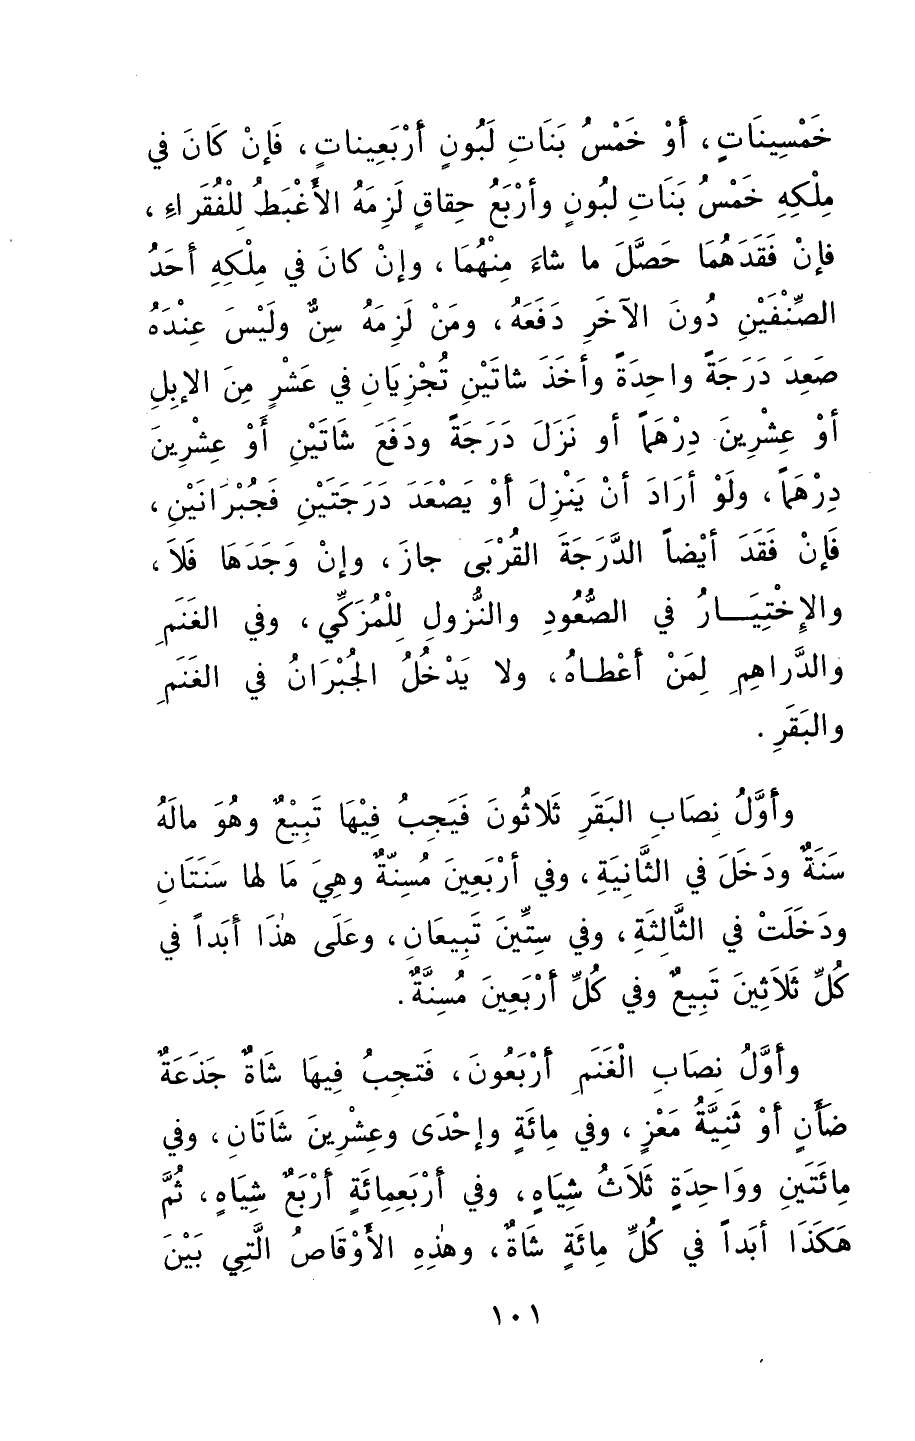 خَمْسِينَاتٍ، أوْ خَمْسُ بَنَاتِ لَبُونٍ أرْبَعِيناتٍ، فَإنْ كَانَ في
مِلْكِهِ خَمْسُ بَنَاتِ لبُونٍ وأرْبَعُ حِقاقٍ لَزِمَهُ الأَغْبَطُ لِلْفُقَراءِ،
فإنْ فَقَدَهُمَا حَصَّلَ ما شاءَ مِنْهُمَا، وإنْ كانَ في مِلْكِهِ أحَدُ
الصِّنْفَيْنِ دُونَ الآخَرِ دَفَعَهُ، ومَنْ لَزِمَهُ سِنٌّ ولَيْسَ عِنْدَهُ
صَعِدَ دَرَجَةً واحِدَةً وأخَذَ شاتَيْنِ تُجْزِيَانِ في عَشْرٍ مِنَ الإبِلِ
أوْ عِشْرِينَ دِرْهَماً أو نَزَلَ دَرَجَةً ودَفَعَ شَاتَيْنِ أَوْ عِشْرِينَ
دِرْهَماً، ولَوْ أرَادَ أنْ يَنْزِلَ أوْ يَصْعَدَ دَرَجَتَيْنِ فَجُبْرَانَيْنِ،
فَإنْ فَقَدَ أيْضاً الدَّرَجَةَ القُرْبَى جازَ، وإنْ وَجَدَهَا فَلاَ،
والإخْتِيَـــارُ في الصُّعُودِ والنُّزولِ لِلْمُزَكِّي، وفي الغَنَمِ
والدَّراهِمِ لِمَنْ أعْطـاهُ، ولا يَدْخُلُ الجُبْرَانُ في الغَنَمِ
والبَقَرِ.
وأوَّلُ نِصَابِ البَقَرِ ثَلاثُونَ فَيَجِبُ فِيْهَا تَبِيْعٌ وهُوَ مالَهُ
سَنَةٌ ودَخَلَ في الثَّانِيَةِ، وفي أرْبَعِينَ مُسِنّةٌ وهِيَ مَا لها سَنَتَانِ
ودَخَلَتْ في الثَّالِثَةِ، وفي سِتِّينَ تَبِيعَانِ، وعَلَى هٰذَا أبَداً في
كُلِّ ثَلاَثِينَ تَبِيعٌ وفي كُلِّ أرْبَعِينَ مُسِنَّةٌ.
وأوَّلُ نِصَابِ الْغَنَمِ أرْبَعُونَ، فَتجِبُ فِيهَا شَاةٌ جَذَعَةٌ
ضَأنٍ أوْ ثَنِيَّةُ مَعْزٍ، وفي مِائَةٍ وإحْدَى وعِشْرِينَ شَاتَانِ، وفي
مِائَتَينِ ووَاحِدَةٍ ثَلَاثُ شِيَاهٍ، وفي أرْبَعِمِائَةٍ أرْبَعُ شِيَاهٍ، ثُمَّ
هَكَذَا أبَداً في كُلِّ مِائَةٍ شَاةٌ، وهٰذِهِ الأَوْقَاصُ الَّتِي بَيْنَ
١٠١